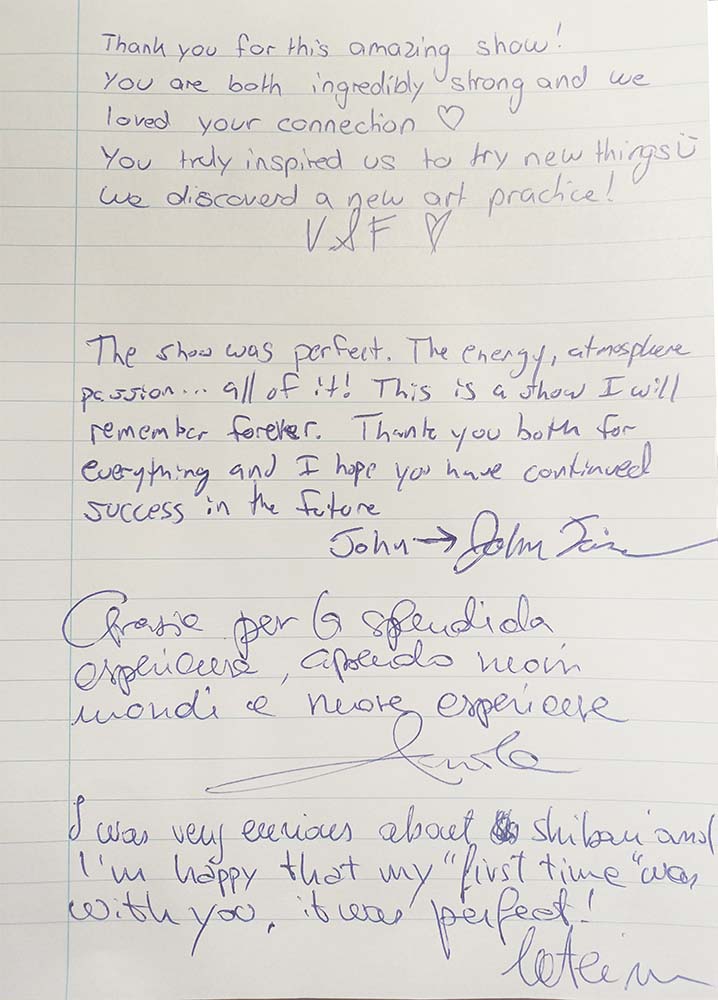 Thank you for this amazing show!
You are both ingredibly strong and we
loved your connection ♡
You truly inspired us to try new things
we discoverd a new art practice!
V&F ♡
The show was perfect. The energy, atmosphere
passion... all of it! This is a show I will
remember forever. Thank you both for
everything and I hope you have continued
success in the future
John → John
Grazie per la splendida
esperienza, aprendo nuovi
mondi e nuove esperienze
I was very curious about shibari and
I'm happy that my "first time" was
with you, it was perfect!